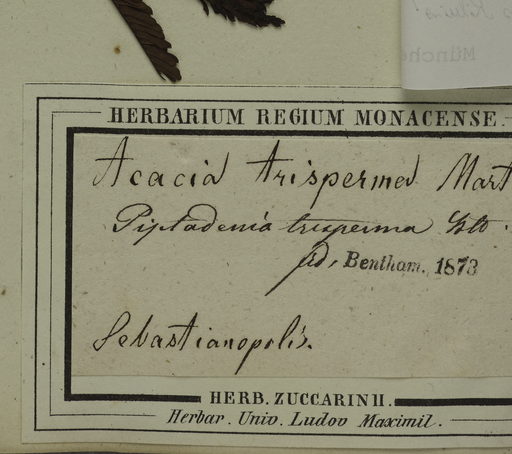 Münche
HERBARIUM REGIUM MONACENSE.
Acacia trisperma Mart
Piptadenia trisperma Bth.
fid. Bentham. 1873
Sebastianopolis.
HERB. ZUCCARINII.
Herbar. Univ. Ludov Maximil.